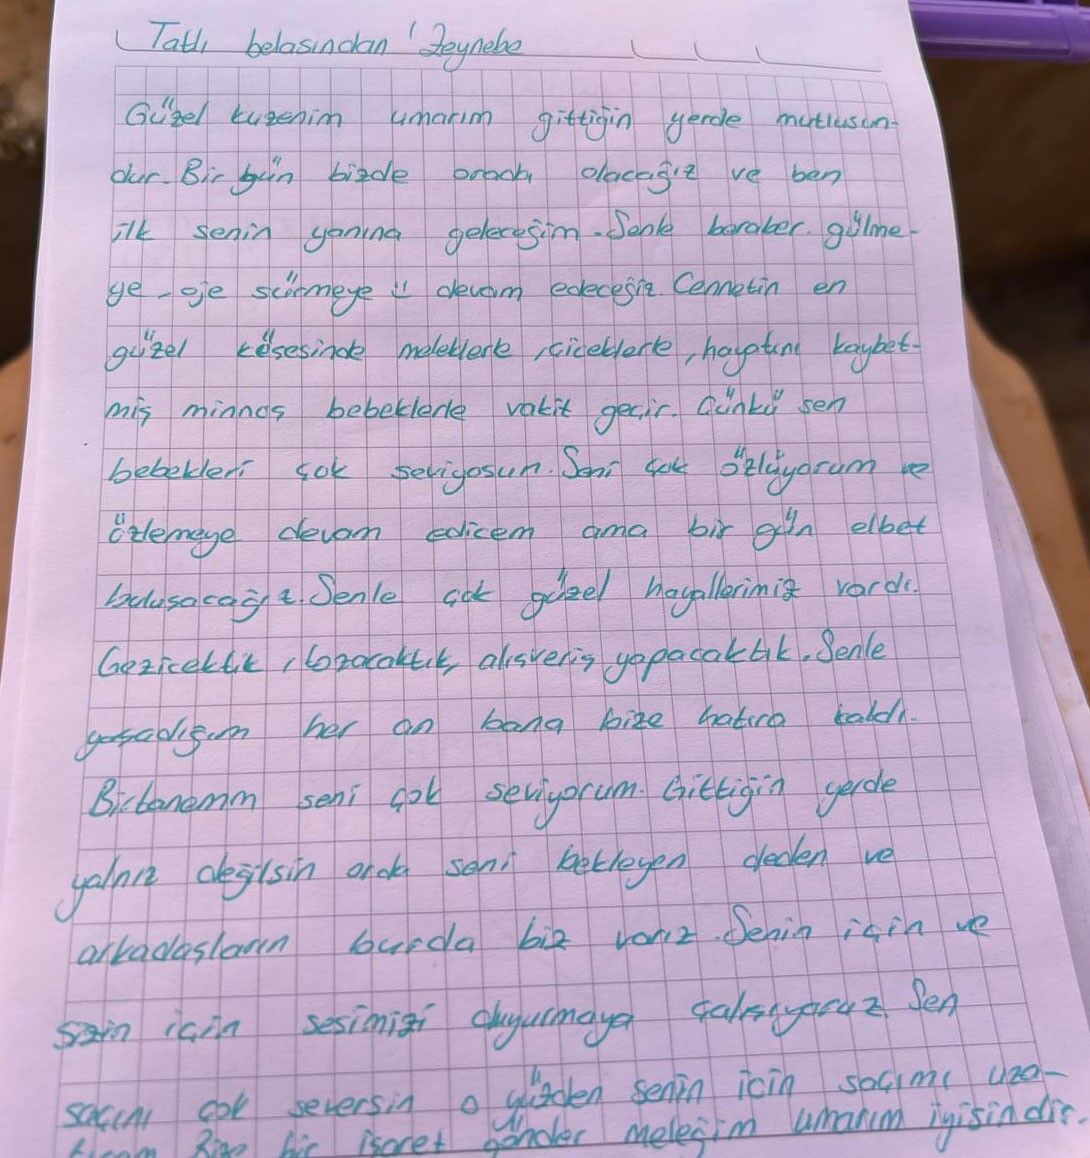 Tatlı belasından Zeynebe
Güzel kuzenim umarım gittiğin yerde mutlusun-
dur. Bir gün bizde orada olacağız ve ben
ilk senin yanına geleceğim. Senle beraber gülme-
ye, oje sürmeye devam edeceğiz. Cennetin en
güzel köşesinde meleklerle, çiceklerle, hayatını kaybet-
miş minnoş bebeklerle vakit geçir. Çünkü sen
bebekleri çok seviyosun. Seni çok özlüyorum ve
özlemeye devam edicem ama bir gün elbet
buluşacağız. Senle çok güzel hayallerimiz vardı.
Gezicektik, tozacaktık, alısveriş yapacaktık. Senle
yaşadığım her an bana bize hatıra kaldı.
Bictanemm seni çok seviyorum. Gittiğin yerde
yalnız değilsin orda seni bekleyen deden ve
arkadaşların burda biz varız. Senin için ve
sizin için sesimizi duyurmaya çalısıyoruz. Sen
saçını çok seversin o yüzden senin icin saçımı uza-
tıcam Bize bir işaret gönder meleğim umarım iyisindir.